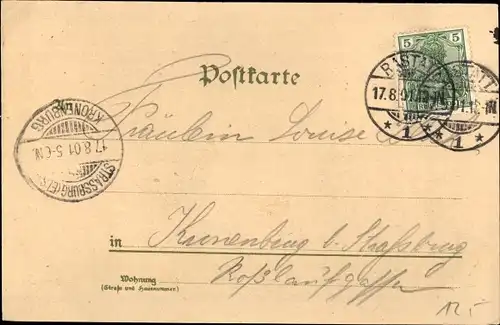 Postkarte
5
RASTATT
17.8.01
* 1 *
* 1 *
An
Fräulein Louise
KRONENBURG
17.8.01.5-6N.
STRASSBURG (ELS.)
in Kronenburg b. Straßburg
Wohnung
(Straße und Hausnummer)
Roßlaufgasse
12.-